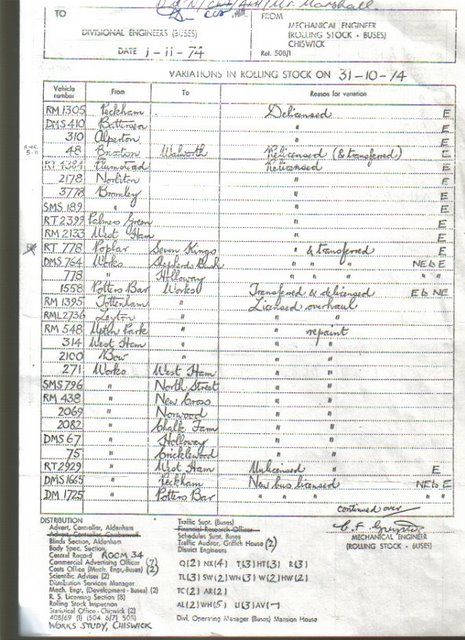 Mr. Marshall
TO
FROM
DIVISIONAL ENGINEERS (BUSES)
MECHANICAL ENGINEER
(ROLLING STOCK - BUSES)
CHISWICK
DATE 1-11-74
Ref. 508/1
VARIATIONS IN ROLLING STOCK ON 31-10-74
Vehicle number From To Reason for variation
RM 1305 Peckham Delicensed E
DMS 410 Battersea " E
310 Alperton " E
48 Brixton Walworth Relicensed (& transferred) E
RT 4384 Plumstead Relicensed E
2178 Norbiton " E
3778 Bromley " E
SMS 189 " " E
RT 2399 Palmers Green " E
RM 2133 West Ham " E
RT 778 Poplar Seven Kings " & transferred E
DMS 764 Works Shepherds Bush " " " NE to E
778 " Holloway " " " " "
1558 Potters Bar Works Transferred & delicensed E to NE
RM 1395 Tottenham " Licensed overhaul
RML 2736 Leyton " " "
RM 548 Upton Park " " repaint
314 West Ham " " "
2100 Bow " " "
271 Works West Ham " "
SMS 796 " North Street " "
RM 438 " New Cross " "
2069 " Norwood " "
2082 " Chalk Farm " "
DMS 67 " Holloway " "
75 " Cricklewood " "
RT 2929 " West Ham Unlicensed " E
DMS 1665 " Peckham New bus licensed NE to E
DM 1725 " Potters Bar " " " " "
continued over
DISTRIBUTION
Advert. Controller, Aldenham
Advert. Controller, Chiswick
Blinds Section, Aldenham
Body Spec. Section
Central Record ROOM 34
Commercial Advertising Officer (7)
Costs Office (Mech. Engr.-Buses) (2)
Scientific Adviser (2)
Distribution Services Manager
Mech. Engr. (Development - Buses) (2)
R. S. Licensing Section (8)
Rolling Stock Inspection
Statistical Office - Chiswick (2)
408/69 (1) (504 6/71 505)
WORKS STUDY, CHISWICK
Traffic Supt. (Buses)
Financial Research Officer
Schedules Supt. Buses
Traffic Auditor, Griffith House (2)
District Engineers
Q(2) NX(4) T(3) HT(3) R(3)
TL(3) SW(2) WN(3) W(2) HW(2)
TC(2) AR(2)
AL(2) WH(5) U(3) AV(-)
Divl. Operating Manager (Buses) Mansion House
MECHANICAL ENGINEER
(ROLLING STOCK - BUSES)